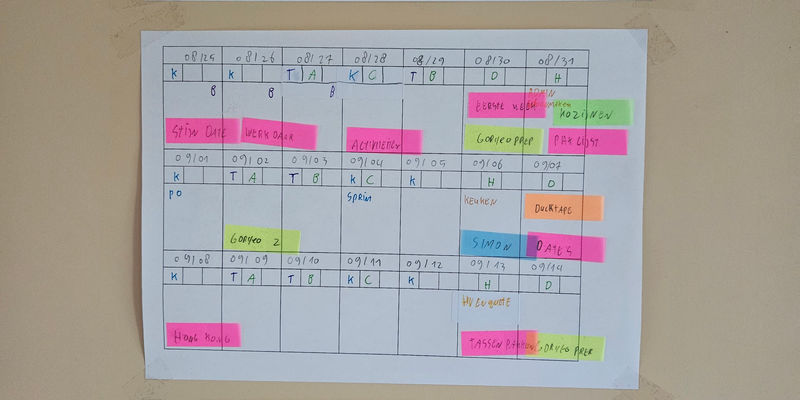 08/25 08/26 08/27 08/28 08/29 08/30 08/31
K K T A K C T B D H
B B B
ADMIN
KOZIJNEN
STIJN DATE WERK DAAR ACTIVITEIT GORYEO PREP PAK LIJST
09/01 09/02 09/03 09/04 09/05 09/06 09/07
K T A T B K C K H D
PO SPRINT KEUKEN DUCKTAPE
GORYEO 2 SIMON DATES
09/08 09/09 09/10 09/11 09/12 09/13 09/14
K T A T B K C K H D
HONG KONG TASSEN GORYEO PREP